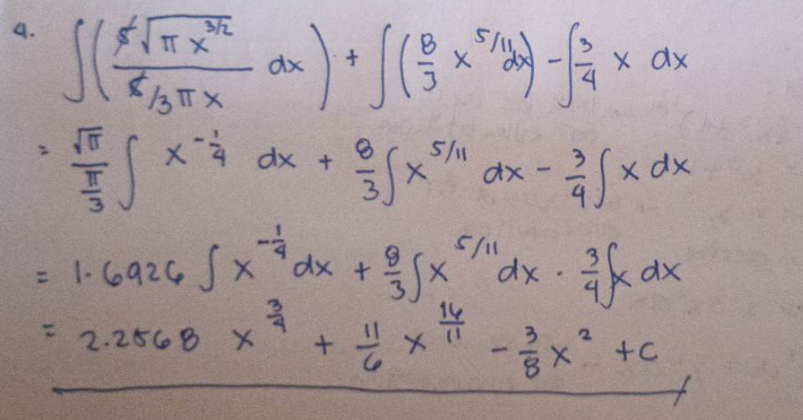 4. ∫(5√(π x^(3/2)) / (5/3 π x) dx) + ∫(8/3 x^(5/11) dx) - ∫3/4 x dx
= √π/(π/3) ∫ x^(-1/4) dx + 8/3 ∫ x^(5/11) dx - 3/4 ∫ x dx
= 1.6926 ∫ x^(-1/4) dx + 8/3 ∫ x^(5/11) dx · 3/4 ∫ x dx
= 2.2568 x^(3/4) + 11/6 x^(16/11) - 3/8 x² + c